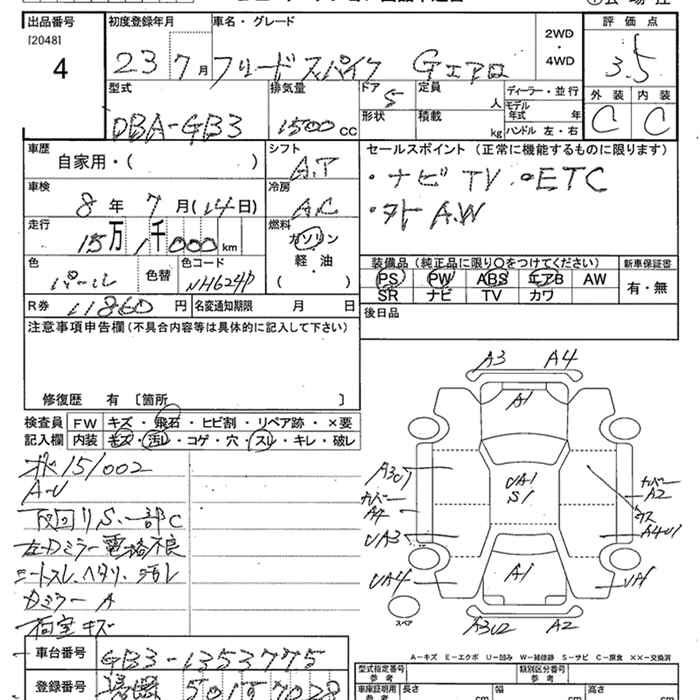 出品番号 初度登録年月 車名・グレード 評価点
[2048]
4
23 7月 フリードスパイク Gエアロ 2WD・4WD 3.5
型式 排気量 ドア 定員 ディーラー・並行 外装 内装
DBA-GB3 1500CC 5 人 モデル年式 年 C C
形状 積載 kg ハンドル 左・右
車歴 シフト セールスポイント (正常に機能するものに限ります)
自家用・( ) A.T
・ナビ TV ・ETC
車検 冷房
8年 7月(14日) A.C
A.W
走行 燃料
15万 1千000km ガソリン
軽・油
( )
装備品 (純正品に限り○をつけてください) 新車保証書
色 色替 色コード
パール NH624P
PS PW ABS エアB AW 有・無
SR ナビ TV カワ
R券 11860円 名変通知期限 月 日
後日品
注意事項申告欄(不具合内容等は具体的に記入して下さい)
修復歴 有 〔箇所 〕
検査員 FW キズ・飛石・ヒビ割・リペア跡・×要
記入欄 内装 キズ・汚レ・コゲ・穴・スレ・キレ・破レ
151002
A-U
下回りS、一部C
左ドミラー電格不良
シートスレ、ヘタリ、汚レ
ドミラー A
荷室キズ
A3 A4
A1
A3U1
カバー
A4
UA3
UA4
UA1
S1
A1
カバー
A2
A4U1
UA1
A3U2 A2
スペア
A-キズ E-エクボ U-凹み W-補修跡 S-サビ C-腐食 ××-交換済
車台番号 GB3-1353775
型式指定番号 参考 類別区分番号 参考
登録番号
車庫証明用 参考 長さ cm 幅 cm 高さ cm